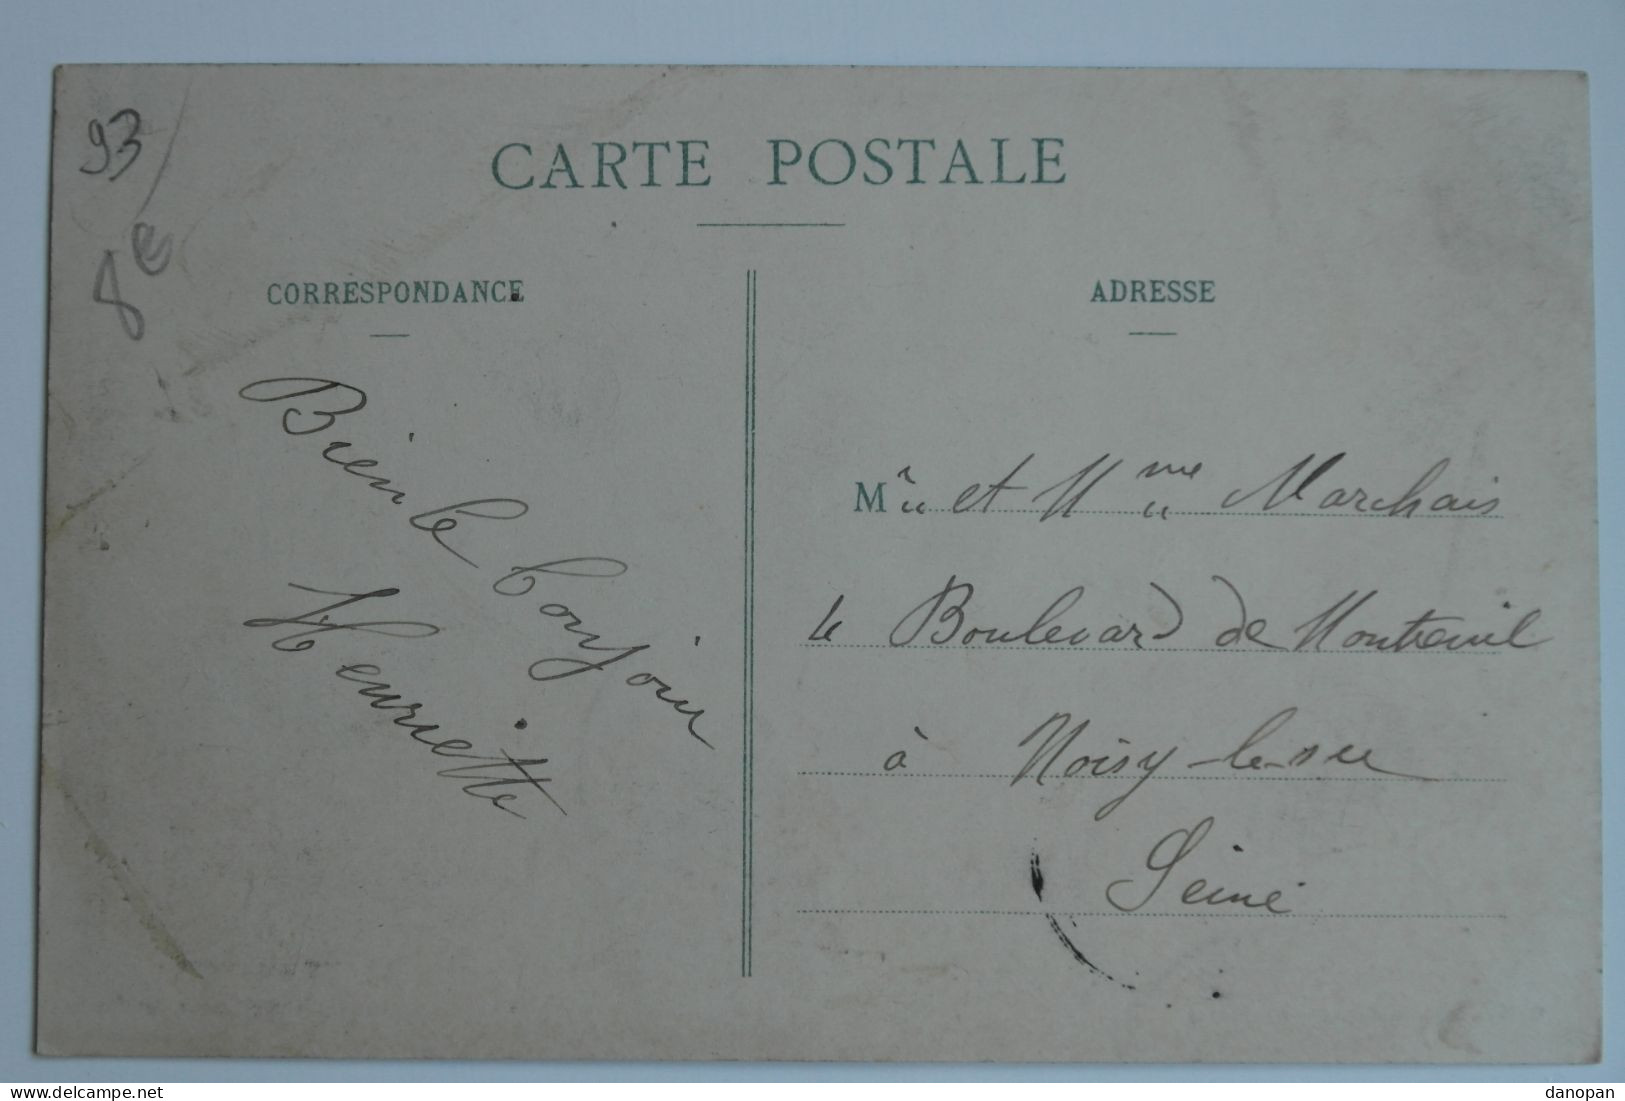 93
8e
CARTE POSTALE
CORRESPONDANCE
Bien le bonjour
Henriette
ADRESSE
Mr et Mme Marchais
4 Boulevard de Montreuil
à Noisy-le-sec
Seine
danopan